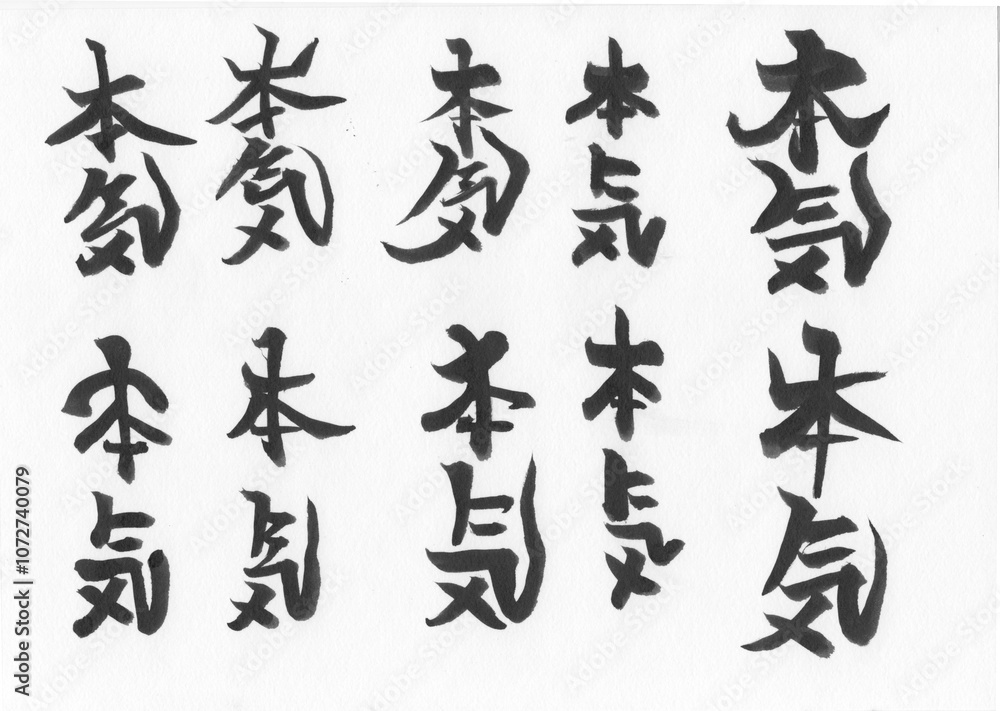 本気 本気 本気 本気 本気
本気 本気 本気 本気 本気
Adobe Stock | #1072740079